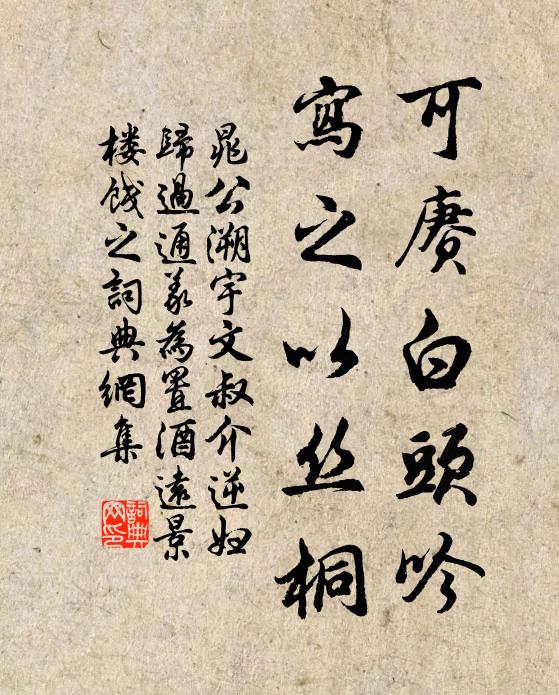 可賡白頭吟
寫之以丝桐
晁公溯宇文叔介逆妇
歸過通義為置酒遠景
楼餞之詞典網集
詞典
网印